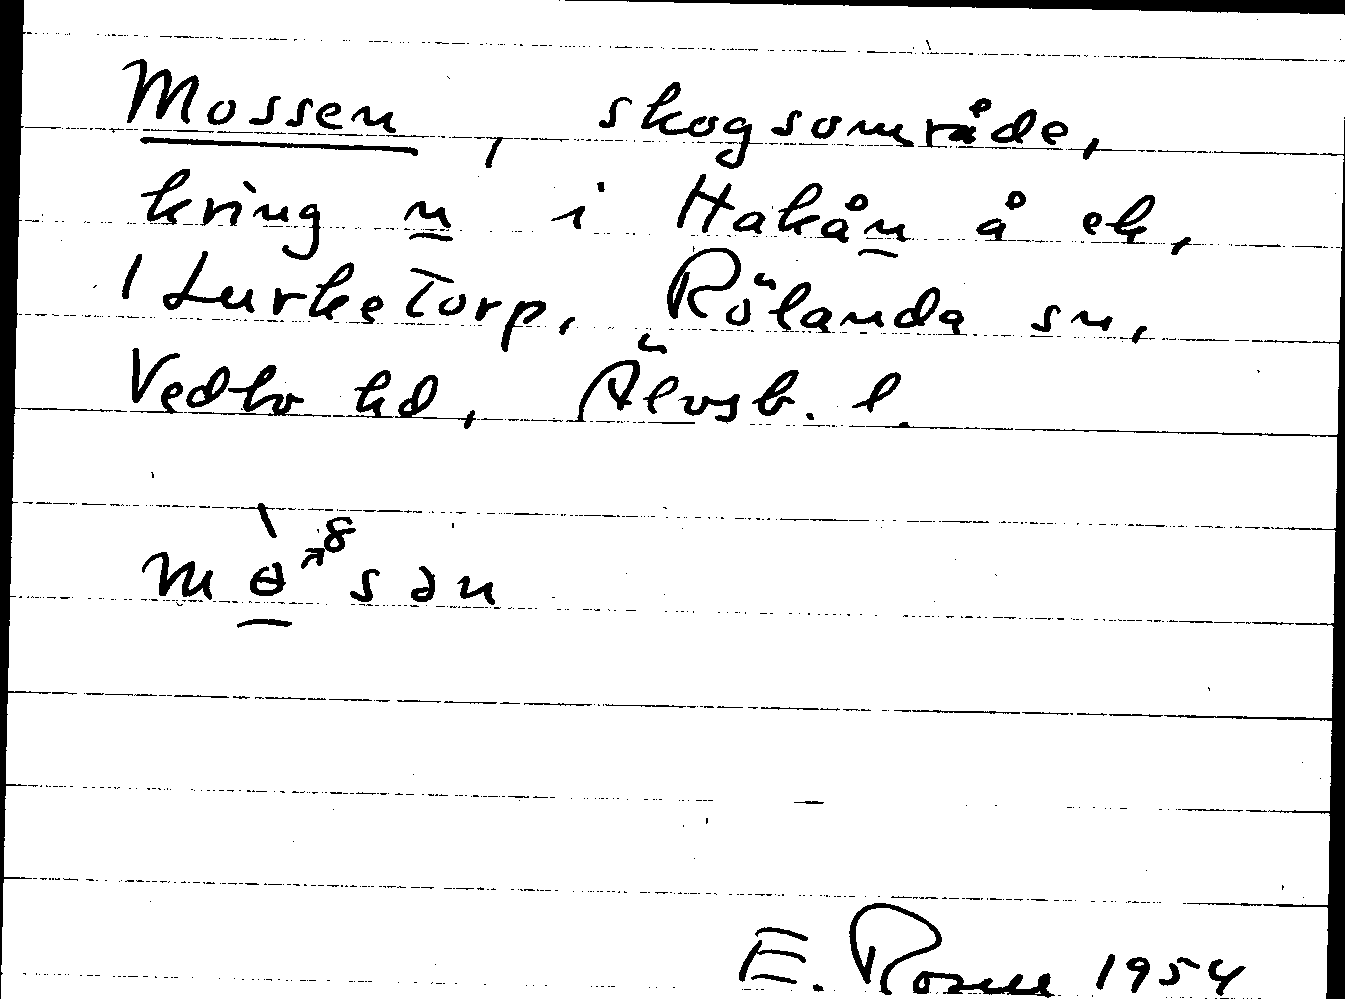 Mossen, skogsområde,
kring n i Hakån å ek,
1 Lurketorp, Rölanda sn,
Vedbo hd, Älvsb. l.
mɵ̀↗8sən
E. Rosell 1954